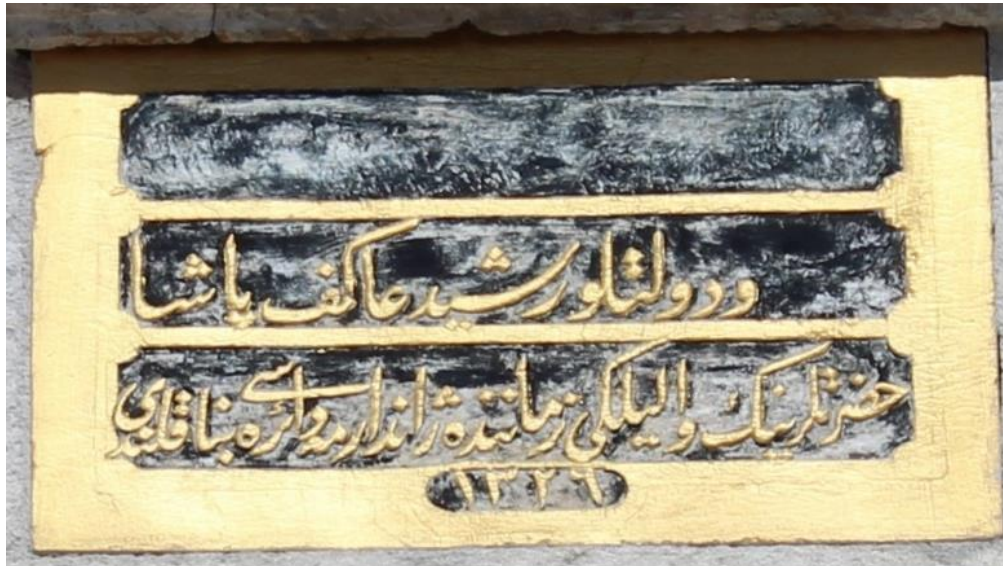 ودولتلو رشيد عاكف پاشا
حضرتلرينك واليلكى زماننده ژاندارمه دائره سى بنا قلندى
١٣٢٦